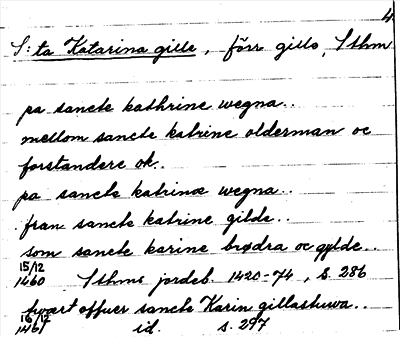 4
S:ta Katarina gille, förr gille, Sthm
pa sancte kathrine wegna..
mellom sancte katrine olderman oc
forstandere ok..
pa sancte katrinæ wegna..
fran sancte katrine gilde..
som sancte karine brødra oc gylde..
15/12
1460 Sthms jordeb. 1420-74, s. 286
hwart offuer sancte Karin gillastuwa..
16/12
1461 id. s. 297